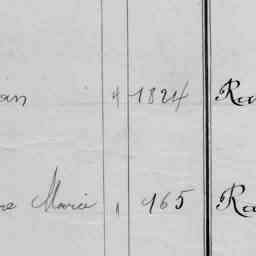 an 4 1824 Ra
re Marie 1 465 Ra